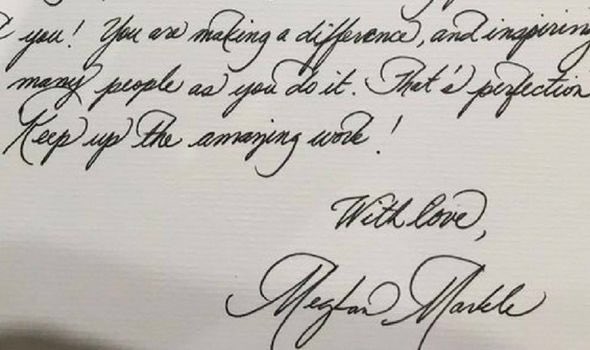 you! You are making a difference, and inspiring
many people as you do it. That's perfection
Keep up the amazing work!
With love,
Meghan Markle